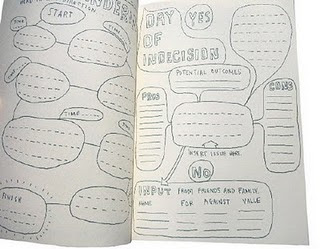 START
TIME
FINISH
DAY
OF
INDECISION
YES
POTENTIAL OUTCOMES
PROS
CONS
INSERT ISSUE HERE
NO
INPUT FROM FRIENDS AND FAMILY
NAME FOR AGAINST VALUE